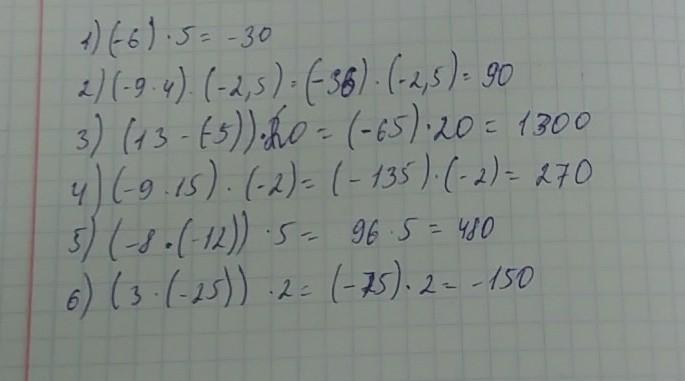 1) (-6) · 5 = -30
2) (-9 · 4) · (-2,5) = (-36) · (-2,5) = 90
3) (13 - (-5)) · 20 = (-65) · 20 = 1300
4) (-9 · 15) · (-2) = (-135) · (-2) = 270
5) (-8 · (-12)) · 5 = 96 · 5 = 480
6) (3 · (-25)) · 2 = (-75) · 2 = -150